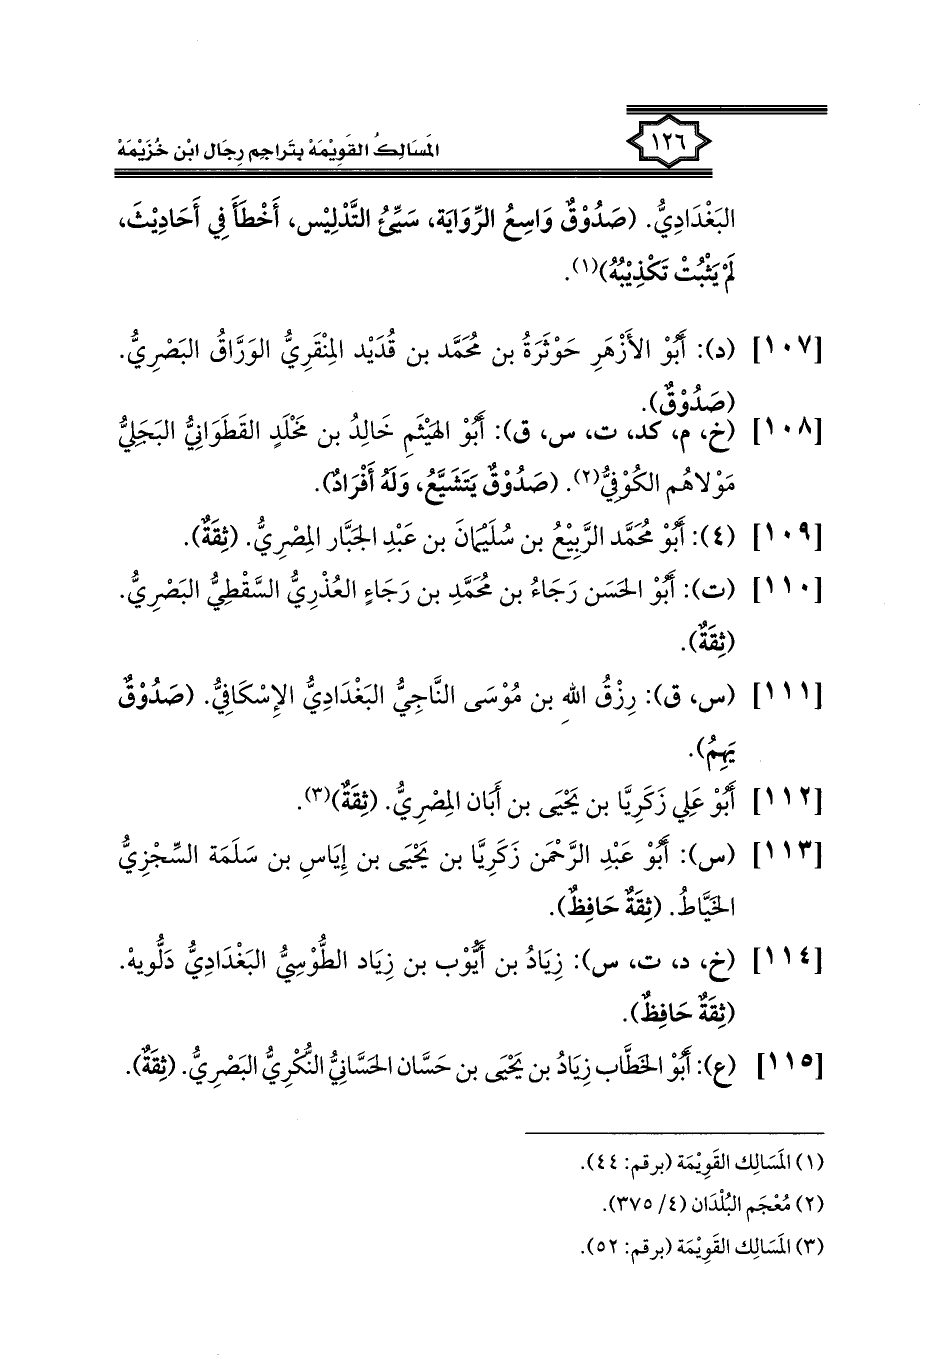 ١٢٦
المَسَالِكُ القَوِيْمَهْ بِتَرَاجِم رِجَال ابْن خُزَيْمَهْ
البَغْدَادِيُّ. (صَدُوْقٌ وَاسِعُ الرِّوَايَة، سَيِّئُ التَّدْلِيْس، أَخْطَأَ فِي أَحَادِيْثَ،
لَمْ يَثْبُتْ تَكْذِيْبُهُ)(١).
[١٠٧] (د): أَبُوْ الأَزْهَرِ حَوْثَرَةُ بن مُحَمَّد بن قُدَيْد المِنْقَرِيُّ الوَرَّاقُ البَصْرِيُّ.
(صَدُوْقٌ).
[١٠٨] (خ، م، كد، ت، س، ق): أَبُوْ الهَيْثَمِ خَالِدُ بن مَخْلَدٍ القَطَوَانِيُّ البَجَلِيُّ
مَوْلاهُم الكُوْفِيُّ(٢). (صَدُوْقٌ يَتَشَيَّعُ، وَلَهُ أَفْرَادٌ).
[١٠٩] (٤): أَبُوْ مُحَمَّد الرَّبِيْعُ بن سُلَيْمَانَ بن عَبْدِ الجَبَّار المِصْرِيُّ. (ثِقَةٌ).
[١١٠] (ت): أَبُوْ الحَسَن رَجَاءُ بن مُحَمَّدِ بن رَجَاءٍ العُذْرِيُّ السَّقْطِيُّ البَصْرِيُّ.
(ثِقَةٌ).
[١١١] (س، ق): رِزْقُ الله بن مُوْسَى النَّاجِيُّ البَغْدَادِيُّ الإِسْكَافِيُّ. (صَدُوْقٌ
يَهِمُ).
[١١٢] أَبُوْ عَلِي زَكَرِيَّا بن يَحْيَى بن أَبَان المِصْرِيُّ. (ثِقَةٌ)(٣).
[١١٣] (س): أَبُوْ عَبْدِ الرَّحْمَن زَكَرِيَّا بن يَحْيَى بن إِيَاسِ بن سَلَمَة السِّجْزِيُّ
الخَيَّاطُ. (ثِقَةٌ حَافِظٌ).
[١١٤] (خ، د، ت، س): زِيَادُ بن أَيُّوْب بن زِيَاد الطُّوْسِيُّ البَغْدَادِيُّ دَلُّويهْ.
(ثِقَةٌ حَافِظٌ).
[١١٥] (ع): أَبُوْ الخَطَّاب زِيَادُ بن يَحْيَى بن حَسَّان الحَسَّانِيُّ النُّكْرِيُّ البَصْرِيُّ. (ثِقَةٌ).
(١) المَسَالِك القَوِيْمَة (برقم: ٤٤).
(٢) مُعْجَم البُلْدَان (٤/ ٣٧٥).
(٣) المَسَالِك القَوِيْمَة (برقم: ٥٢).